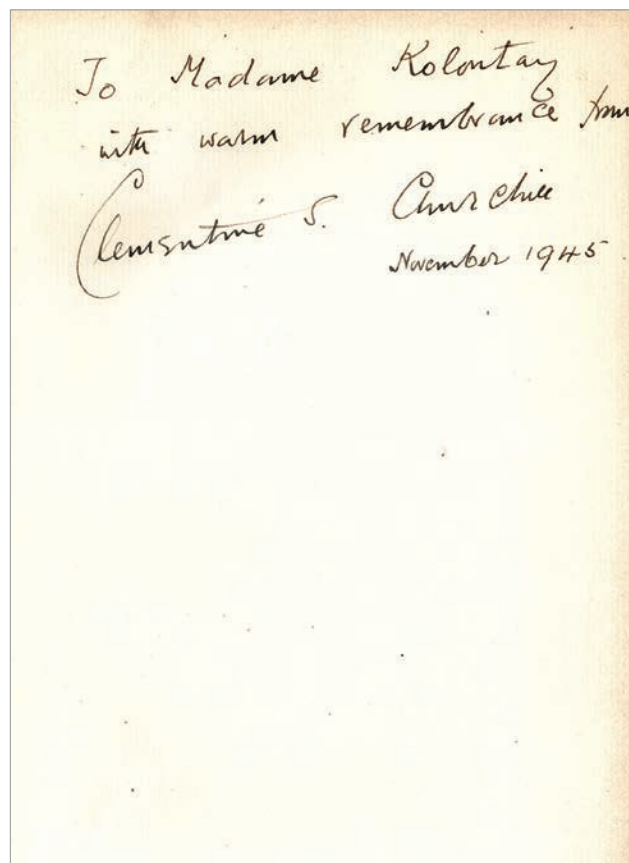 To Madame Kolontay
with warm remembrance from
Clementine S. Churchill
November 1945